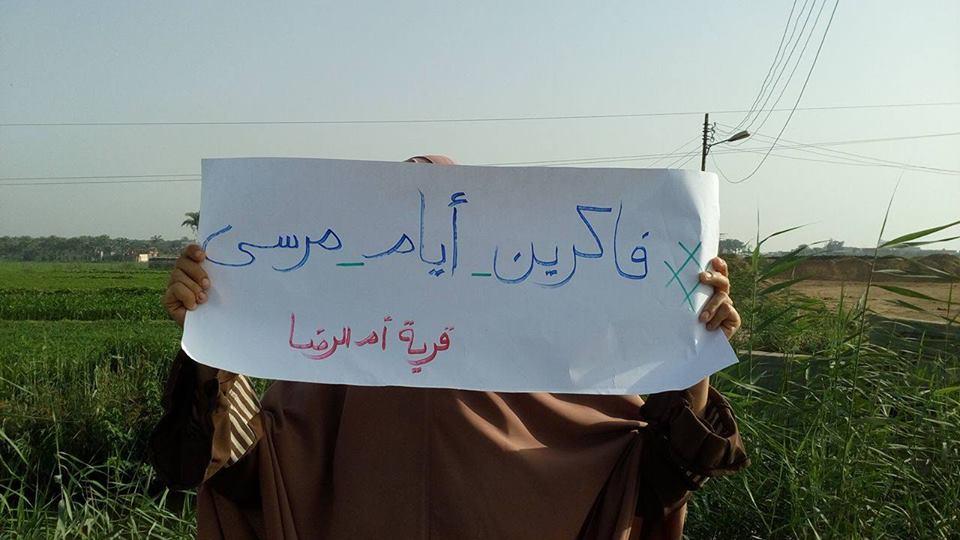 #فاكرين_أيام_مرسى
قرية أم الرضا